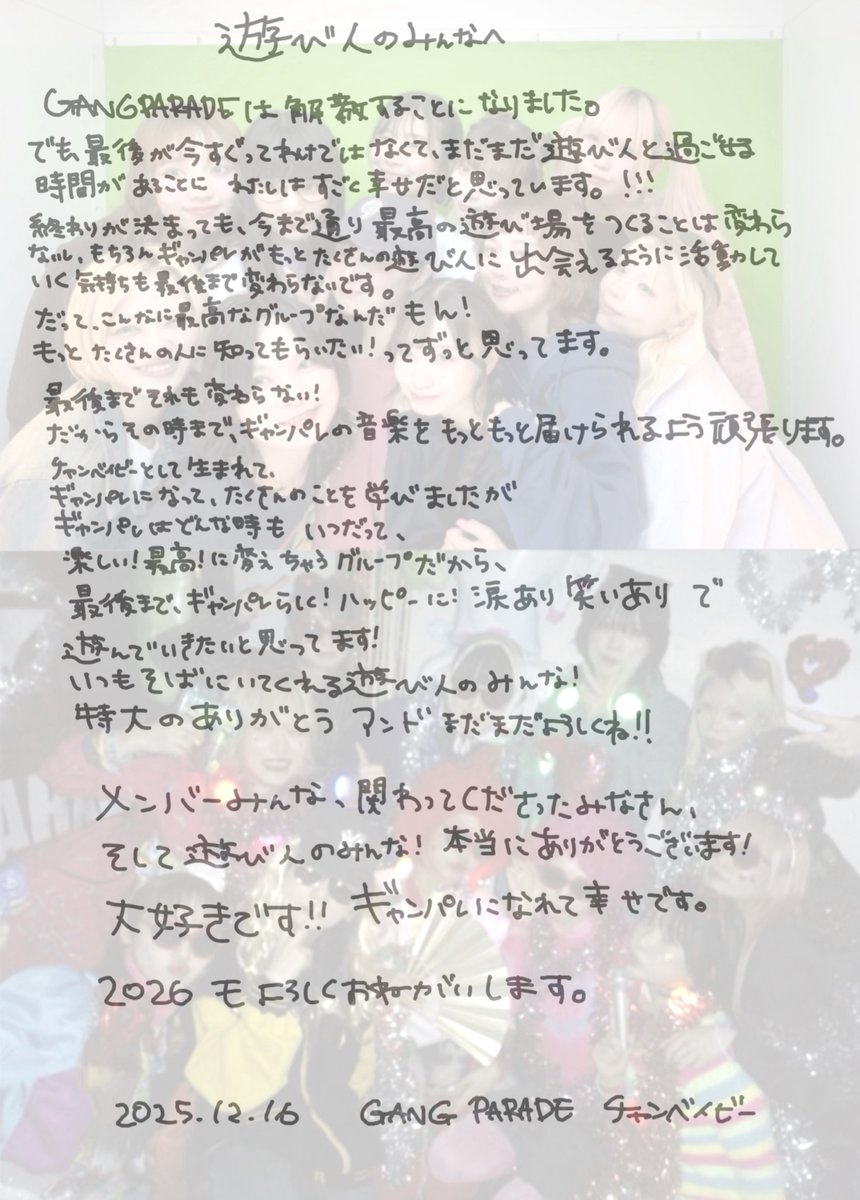 遊び人のみんなへ
GANG PARADEは解散することになりました。
でも、最後が今すぐってわけではなくて、まだまだ遊び人と過ごせる
時間があることに わたしはすごく幸せだと思っています。!!!
終わりが決まっても、今まで通り 最高の遊び場をつくることは変わら
ないし、もちろんギャンパレがもっとたくさんの遊び人に出会えるように活動して
いく気持ちも最後まで変わらないです。
だって、こんなに最高なグループなんだもん!
もっと たくさんの人に知ってもらいたい!ってずっと思ってます。
最後までそれも変わらない!
だからその時まで、ギャンパレの音楽をもっともっと届けられるよう頑張ります。
チャンベイビーとして生まれて、
ギャンパレになって、たくさんのことを学びましたが
ギャンパレはどんな時も いつだって、
楽しい!最高!に変えちゃうグループだから、
最後まで、ギャンパレらしく!ハッピーに!涙あり笑いありで
遊んでいきたいと思ってます!
いつもそばにいてくれる遊び人のみんな!
特大のありがとう アンド まだまだよろしくね!!
メンバーみんな、関わってくださったみなさん、
そして遊び人のみんな! 本当にありがとうございます!
大好きです!! ギャンパレになれて幸せです。
2026 モよろしくおねがいします。
2025.12.16 GANG PARADE チャンベイビー